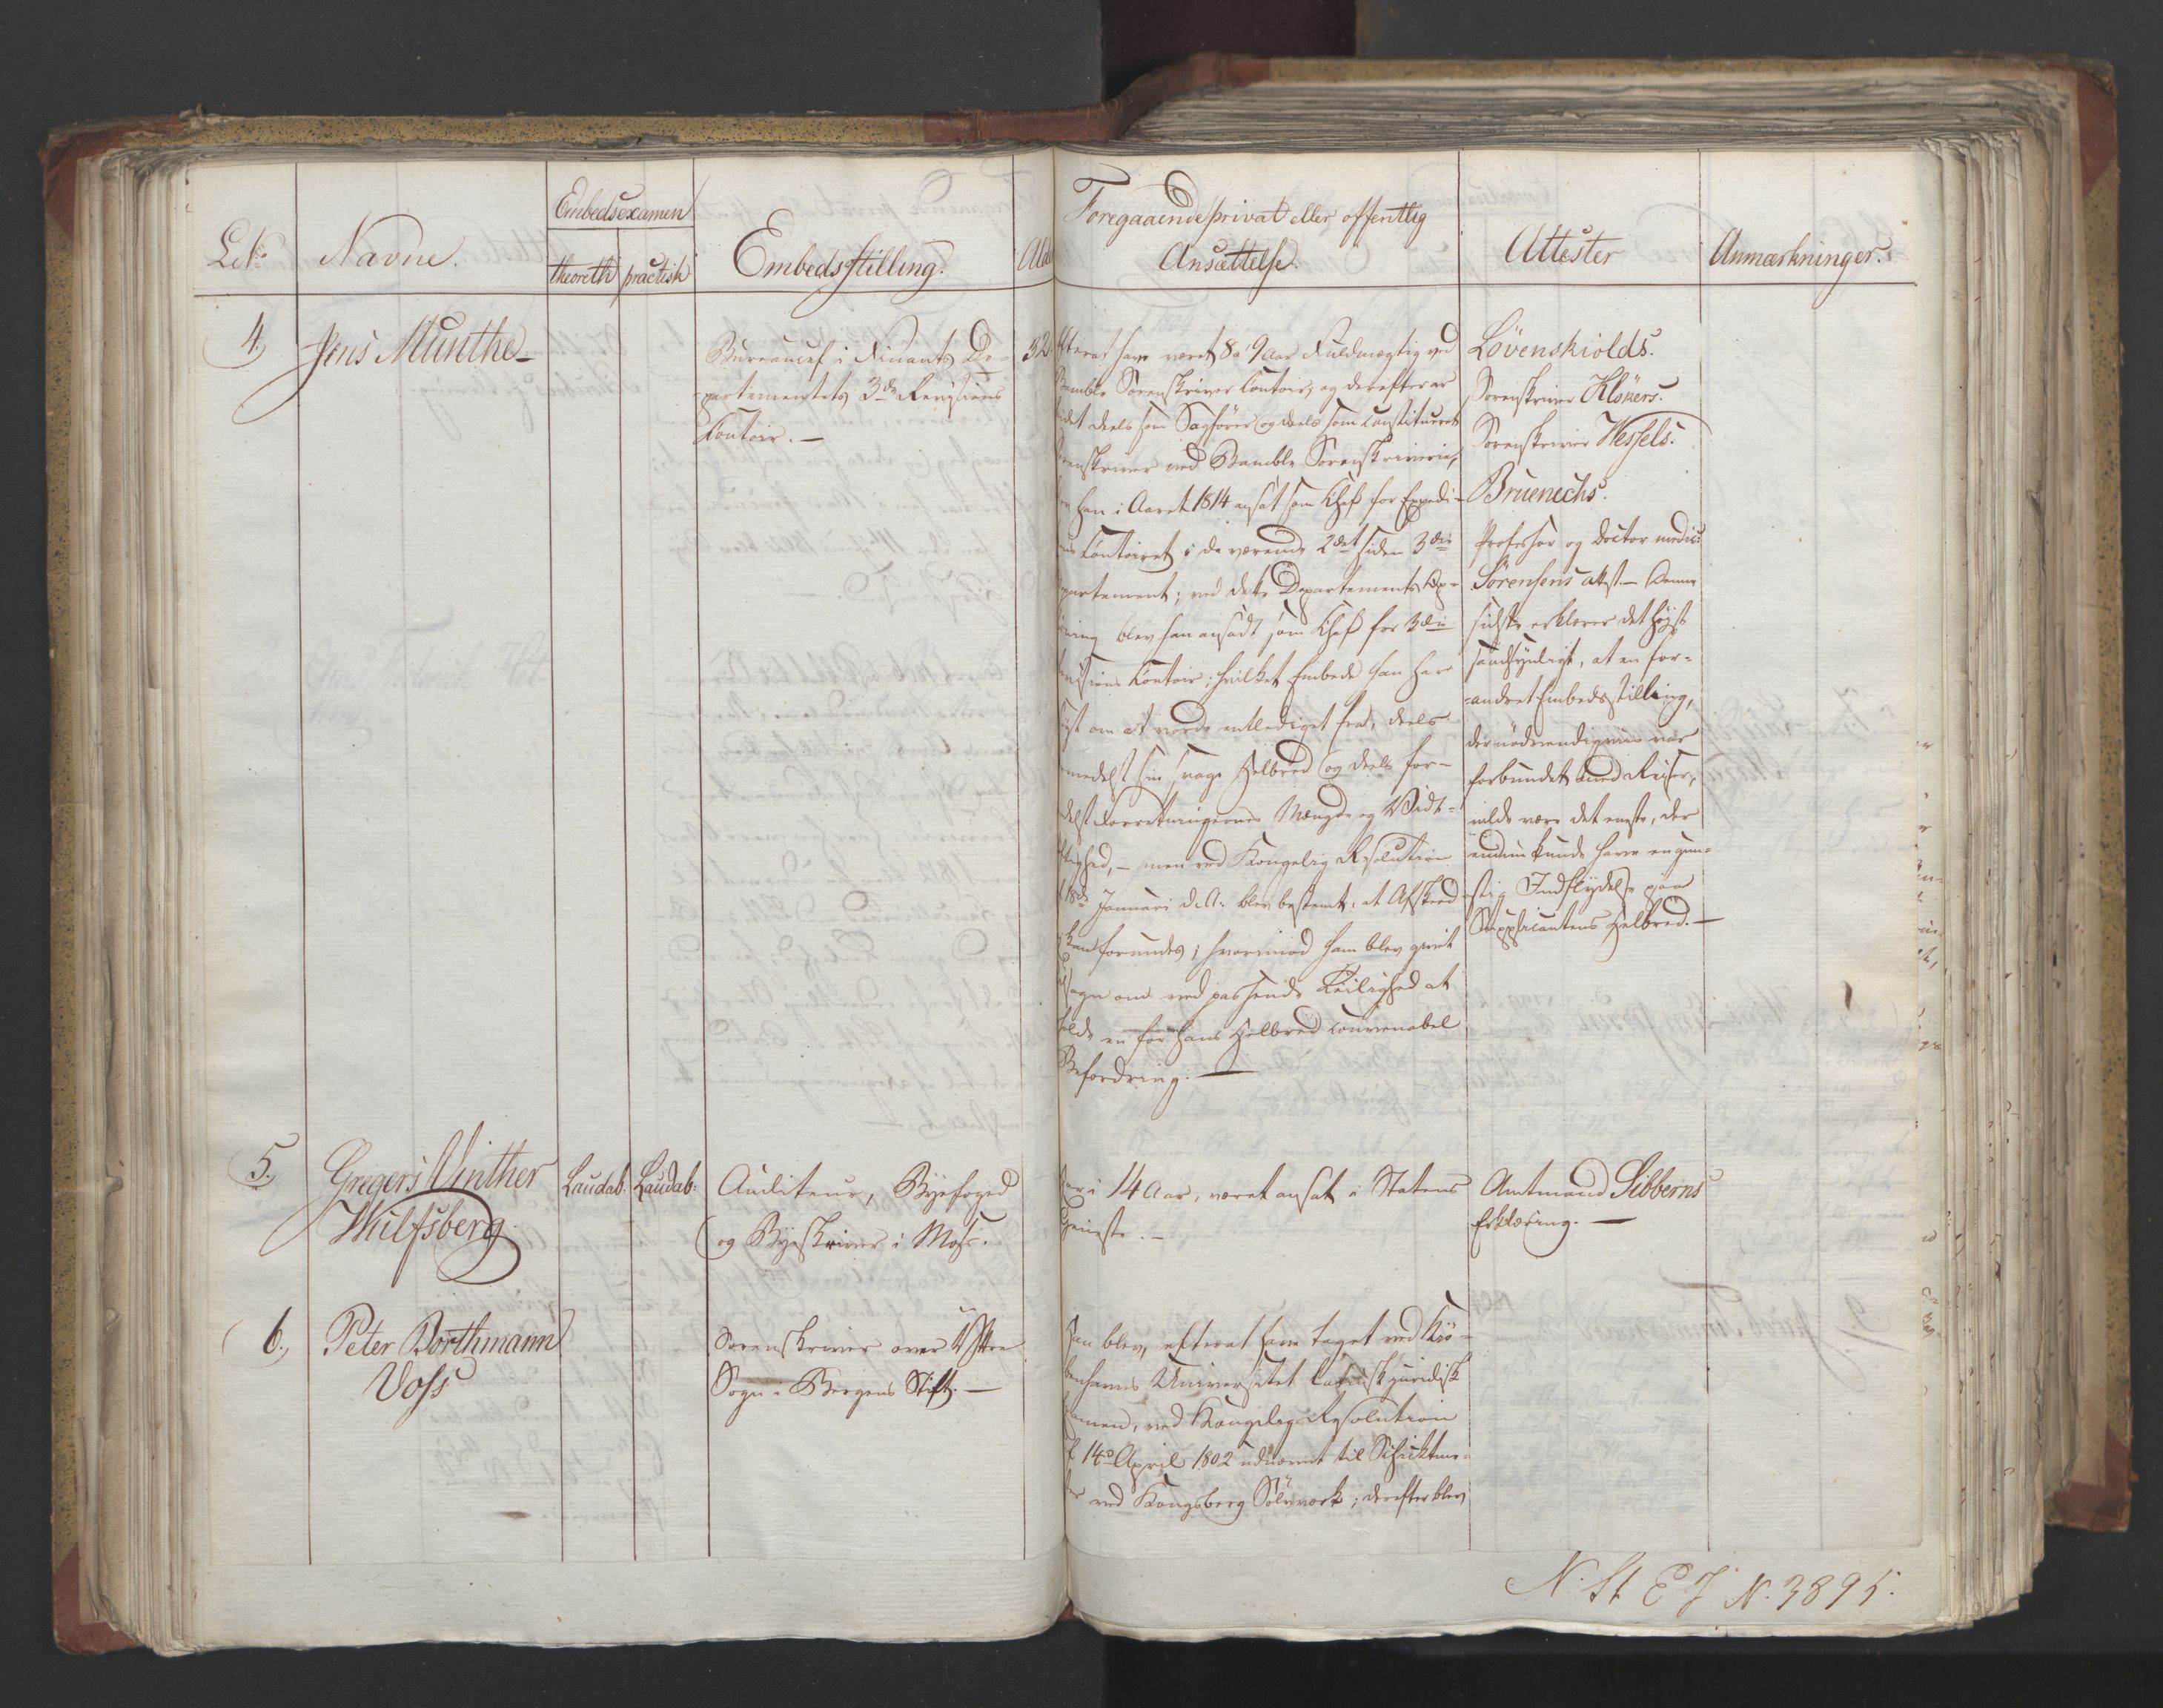 Embedsexamen
L. No.
Navne.
theoretisk
practisk
Embedsstilling.
Alder
Foregaaende privat eller offentlig
Ansættelse.
Attester
Anmærkninger.
4,
Jens Munthe
Bureauchef i Finants De-
partementets 3die Revisions
Contoir. —
32
efterat have været 8 a 9 Aar Fuldmægtig ved
Bamble Sorenskriver Contoir, og derefter ar
deels som Sagfører og deels som constitueret
Sorenskriver ved Bamble Sorenskriverie,
han i Aaret 1814 ansat som Chef for Expedi-
Contoiret i daværende 2det siden 3die
partement; ved dette Departements Op-
blev han ansadt som Chef for 3die
Contoir; hvilket Embede han har
om at vorde entlediget fra, deels
formedelst sin svage Helbred og deels for-
Forretningernes Mængde og Vidt-
— men ved Kongelig Resolution
18de Januari d. A. blev bestemt, at Afskeed
forundes; hvorimod ham blev givet
om ved passende Leilighed at
en for hans Helbred convenabel
Befordring. —
Lövenskiolds.
Sorenskriver Klökers.
Sorenskriver Wessels.
Bruenechs.
Professor og Doctor medic:
Sörensens Attest — Denne
sidste erklærer det høist
sandsynligt, at en for-
andret Embedsstilling,
der nødvendigviis var
forbundet med Reiser,
vilde være det eneste, der
endnu kunde have en gun-
stig Indflydelse paa
Supplicantens Helbred. —
5.
Gregers Vinther
Wulfsberg
Laudab:
Laudab:
Auditeur, Byefoged
og Byeskriver i Moss.
har i 14 Aar, været ansat i Statens
Tjeneste. —
Amtmand Sibberns
Erklæring. —
6.,
Peter Borthmann
Voss
Sorenskriver over Ystre
Sogn i Bergens Stift. —
Han blev, efterat have taget ved Kiö-
benhavns Universitet Latinsk juridisk
Examen, ved Kongelig Resolution
14de April 1802 udnævnt til Schichtme-
ster ved Kongsberg Sølvværk; derefter blev
N. St E J N. 3895.